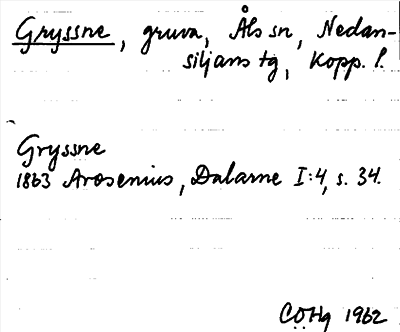 Gryssne, gruva, Åls sn, Nedan-
siljans tg, Kopp. l.
Gryssne
1863 Arosenius, Dalarne I:4, s. 34.
COHg 1962